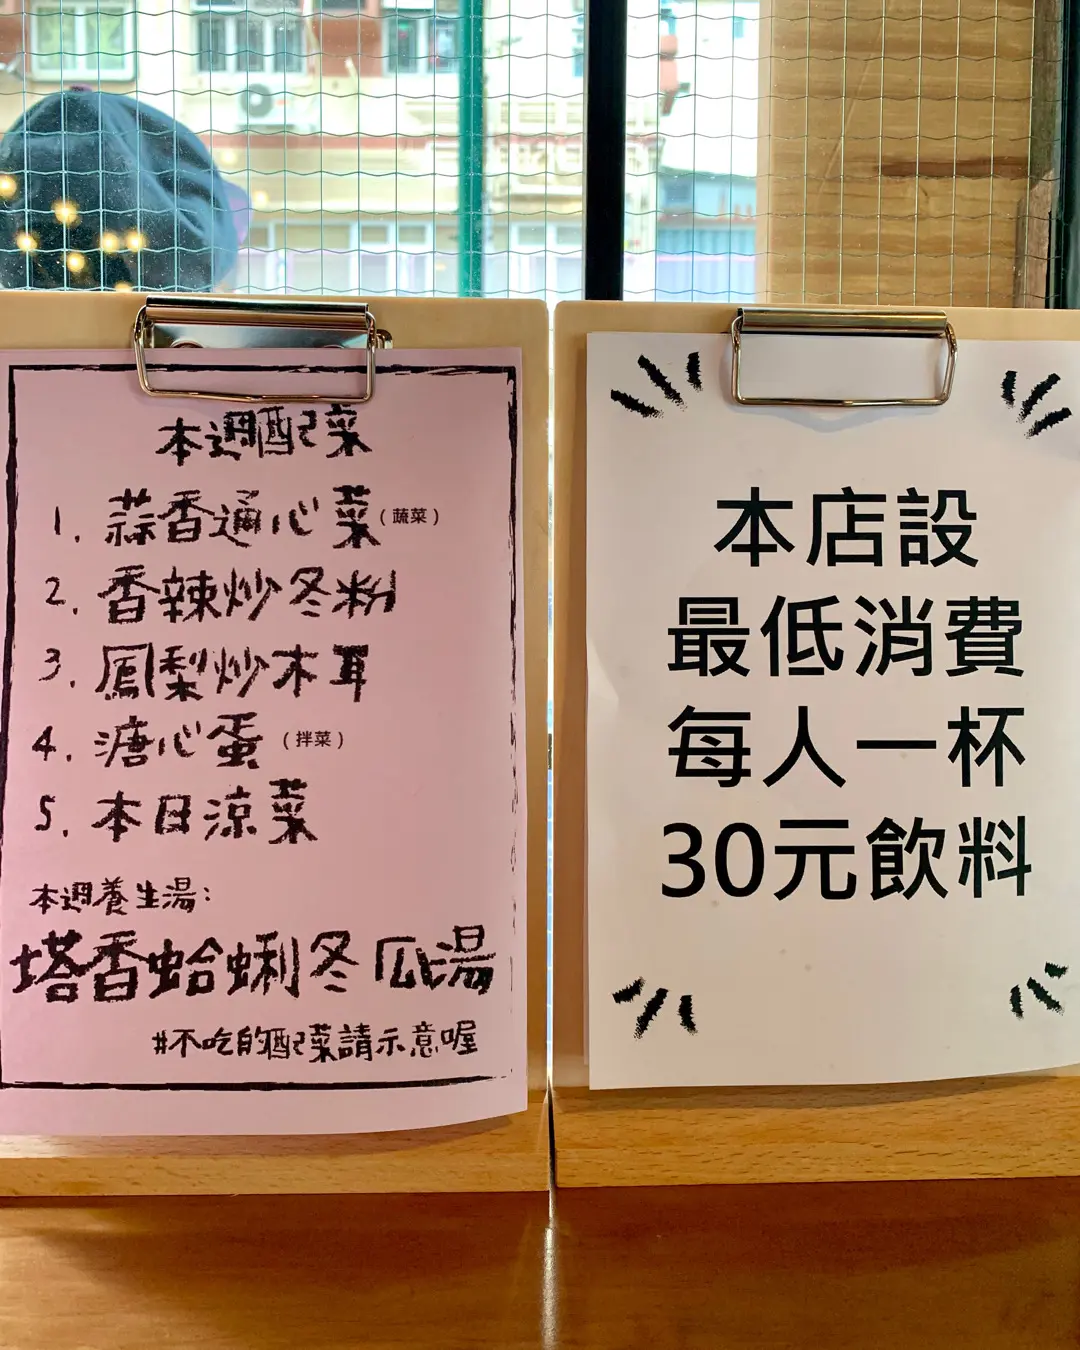 本週配菜
1. 蒜香通心菜(蔬菜)
2. 香辣炒冬粉
3. 鳳梨炒木耳
4. 溏心蛋(拌菜)
5. 本日涼菜
本週養生湯:
塔香蛤蜊冬瓜湯
#不吃的配菜請示意喔
本店設
最低消費
每人一杯
30元飲料